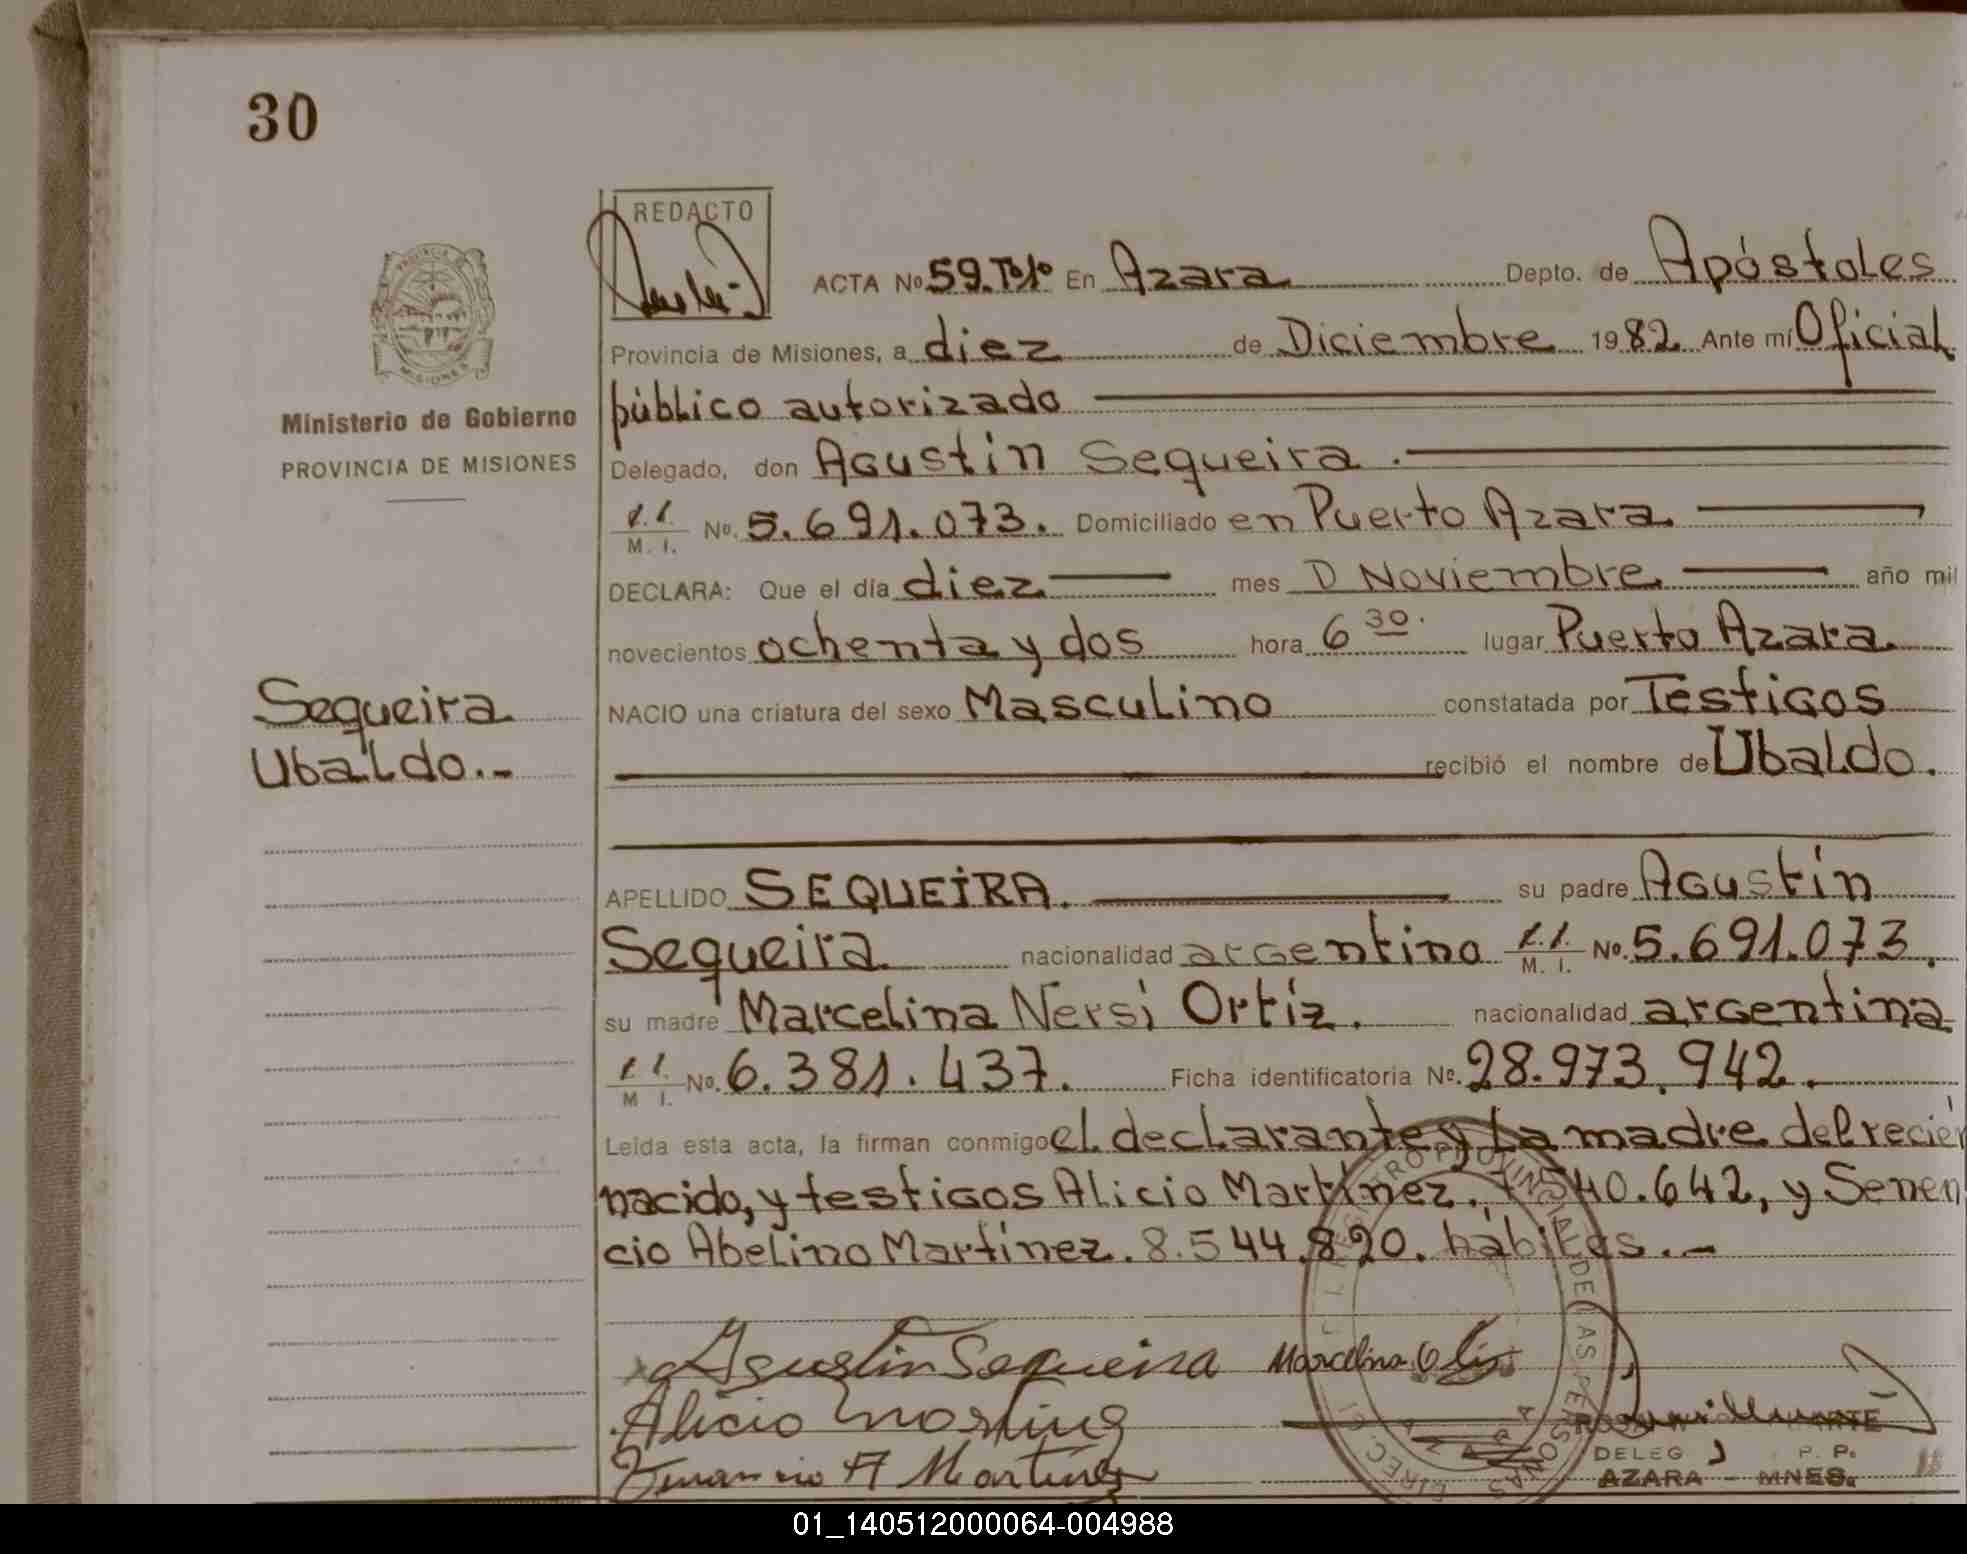 30
REDACTO
ACTA No 59.Tº1º En Azara Depto. de Apóstoles
Provincia de Misiones, a diez de Diciembre 1982 Ante mí Oficial
público autorizado
Ministerio de Gobierno
PROVINCIA DE MISIONES
Delegado, don Agustin Sequeira.
M. I. No. 5.691.073. Domiciliado en Puerto Azara
DECLARA: Que el día diez mes D Noviembre año mil
novecientos ochenta y dos hora 6 30. lugar Puerto Azara
Sequeira
Ubaldo.-
NACIO una criatura del sexo Masculino constatada por Testigos
recibió el nombre de Ubaldo.
APELLIDO SEQUEIRA. su padre Agustín
Sequeira nacionalidad argentino M. I. No. 5.691.073.
su madre Marcelina Nersi Ortíz. nacionalidad argentina
M I. No. 6.381.437. Ficha identificatoria No. 28.973.942.
Leída esta acta, la firman conmigo el declarante y la madre del recién
nacido, y testigos Alicio Martínez, 540.642, y Senen
cio Abelino Martínez. 8.544.820. hábiles.-
Agustin Sequeira Marcelina
Alicio
A Martinez
DELEG P. P.
AZARA - MNES.
PROVINCIA DE MISIONES
REGISTRO PROVINCIAL DE LAS PERSONAS
AZARA
01_140512000064-004988